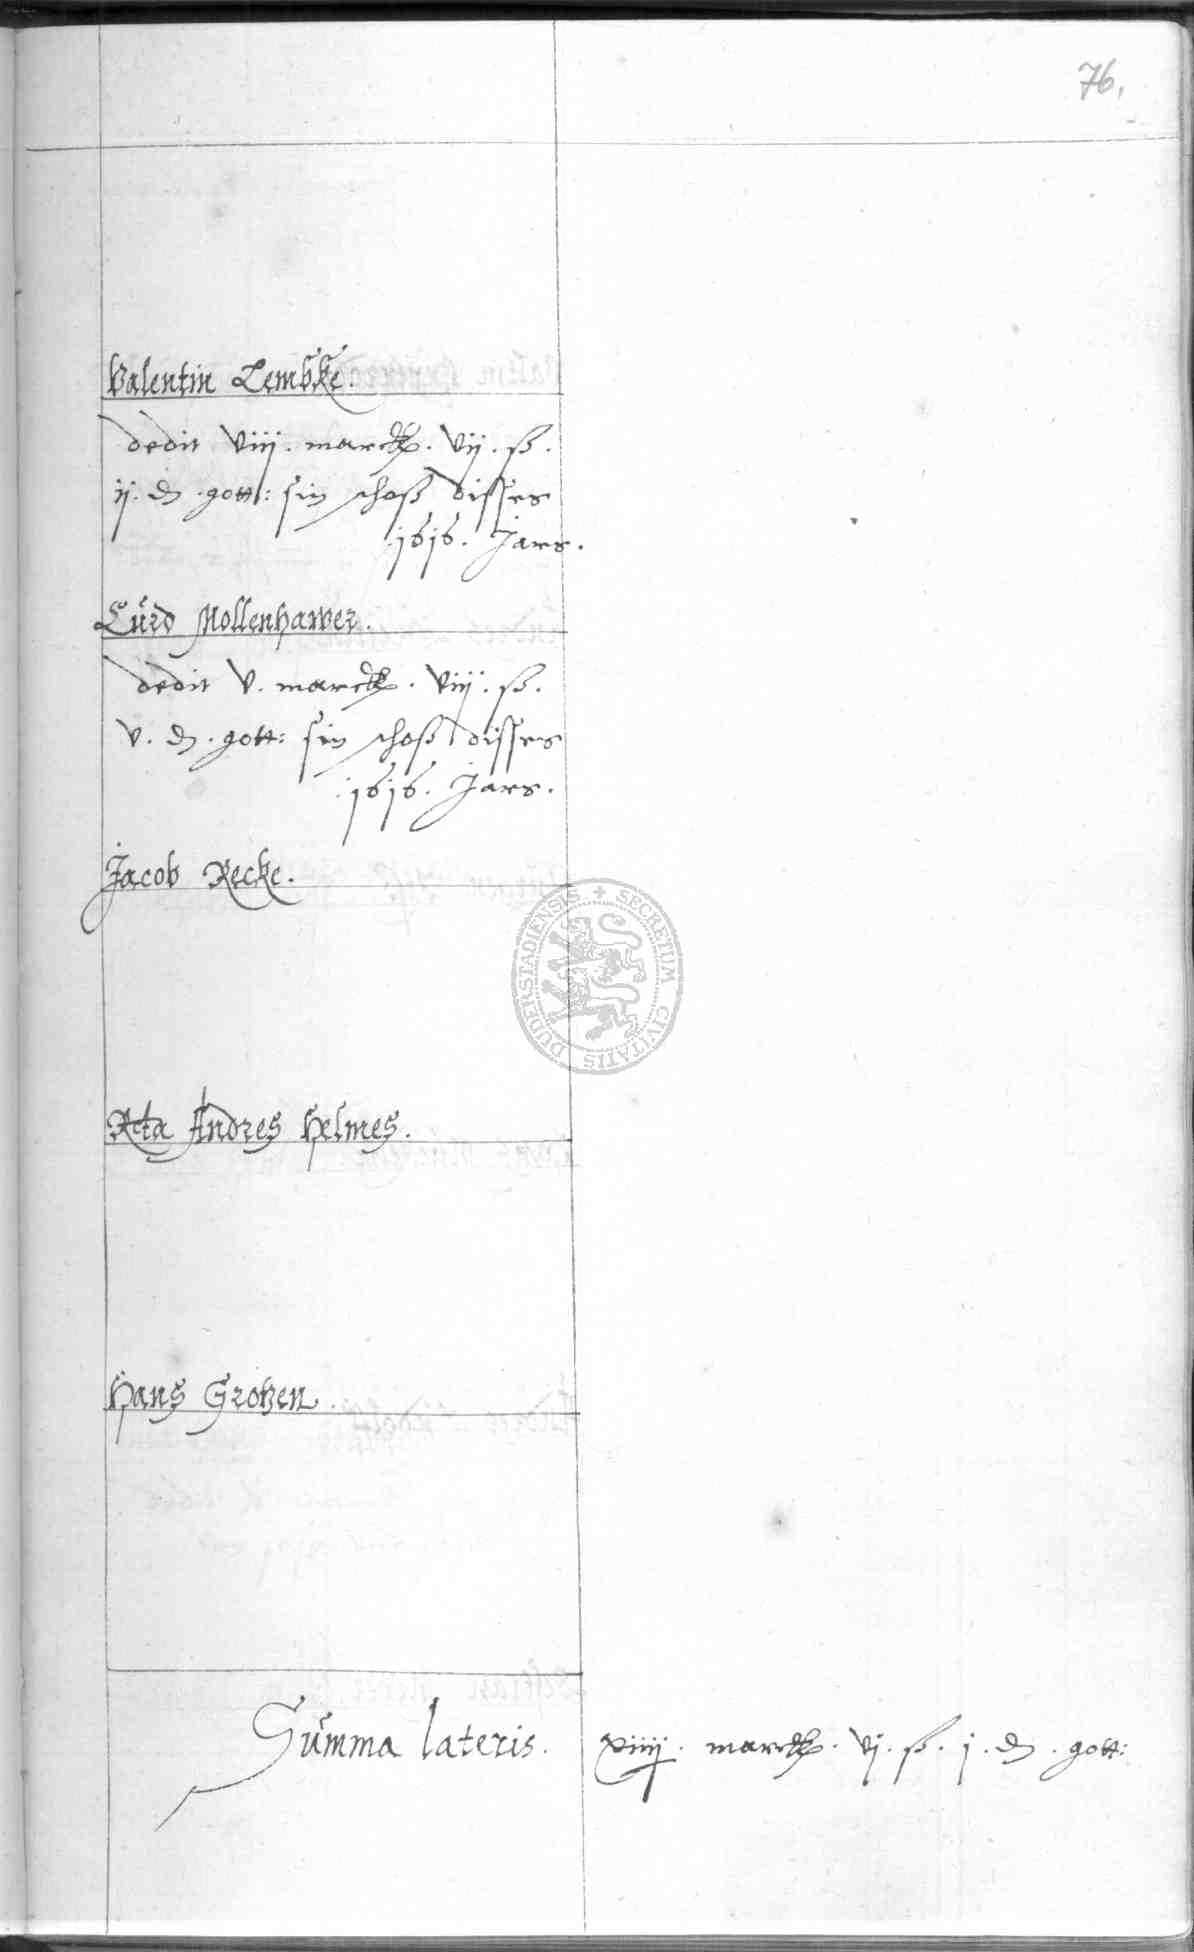 76.
Valentin Lembke.
dedit viij. marck. vij. ß.
ij. d. gott: sin schoß disses
1616. Jars.
Curd Mollenhawer.
dedit v. marck. viij. ß.
v. d. gott: sin schoß disses
1616. Jars.
Jacob Recke.
SECRETUM CIVITATIS DUDERSTADIENSIS
Rcta Andres Helmes.
Hans Grotzen.
Summa lateris. xiiij. marck. vj. ß. j. d. gott: